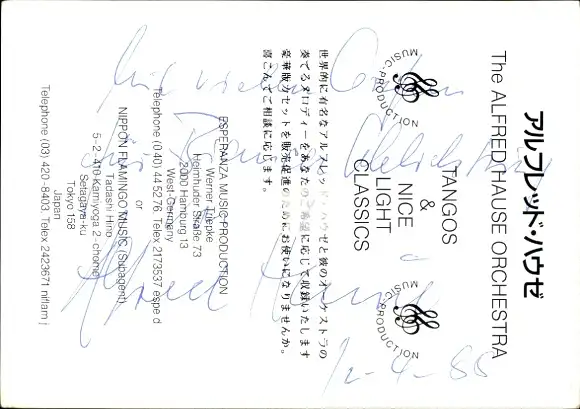 アルフレッド・ハウゼ
The ALFRED HAUSE ORCHESTRA
MUSIC-PRODUCTION
TANGOS
&
NICE
LIGHT
CLASSICS
MUSIC-PRODUCTION
世界的に有名なアルフレッド・ハウゼと彼のオーケストラの
奏でるメロディーをあなたのご希望に応じて収録いたします
豪華版カセットを販売促進のためにお使いになりませんか。
喜こんでご相談に応じます。
ESPERANZA MUSIC-PRODUCTION
Werner Triepke
Heimhuder Straße 73
2000 Hamburg 13
West-Germany
Telephone (0 40) 44 52 76. Telex 2173537 espe d
or
NIPPON FLAMINGO MUSIC (Subagent)
Tadashi Hino
5-2-410-Kamiyoga 2-chome
Setagaya-ku
Tokyo 158
Japan
Telephone (03) 420-8403. Telex 2423671 nflam j
Mit vielen Grüßen
für
Alfred Hause
12-4-88